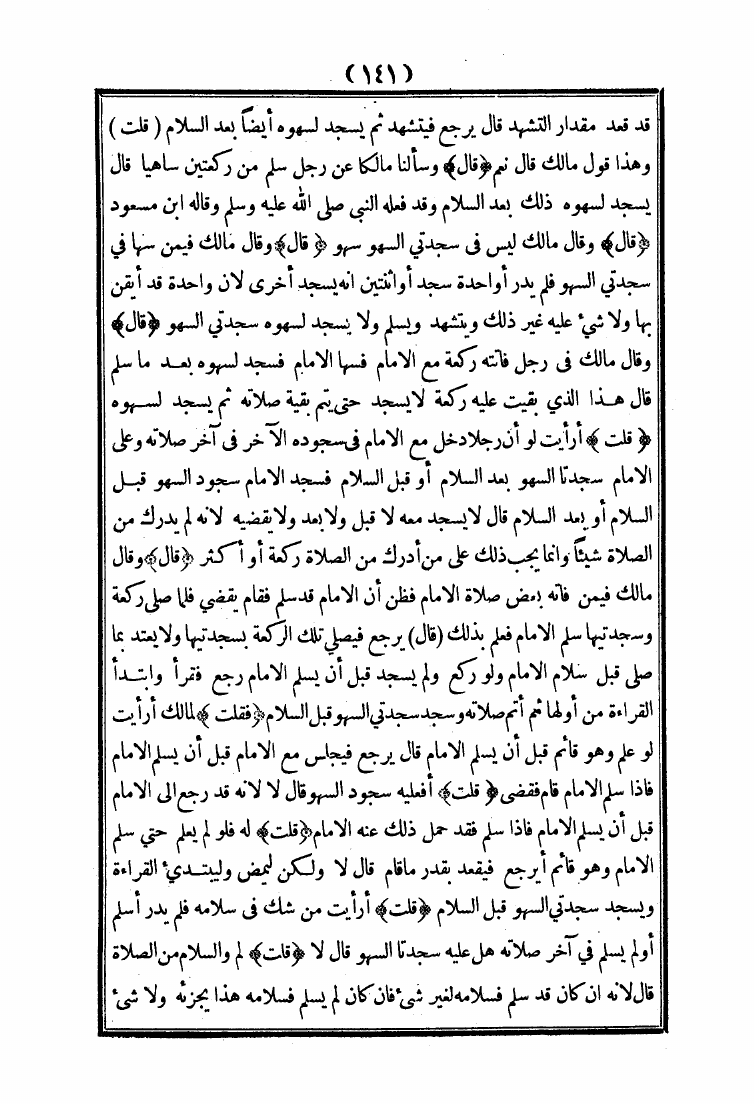 (١٤١)
قد قعد مقدار التشهد قال يرجع فيتشهد ثم يسجد لسهوه أيضاً بعد السلام ( قلت )
وهذا قول مالك قال نعم ﴿قال﴾ وسألنا مالكا عن رجل سلم من ركعتين ساهيا قال
يسجد لسهوه ذلك بعد السلام وقد فعله النبي صلى الله عليه وسلم وقاله ابن مسعود
﴿قال﴾ وقال مالك ليس فى سجدتي السهو سهو ﴿ قال﴾ وقال مالك فيمن سها في
سجدتي السهو فلم يدر أواحدة سجد أواثنتين انه يسجد أخرى لان واحدة قد أيقن
بها ولا شيء عليه غير ذلك ويتشهد ويسلم ولا يسجد لسهوه سجدتي السهو ﴿قال﴾
وقال مالك فى رجل فاتته ركعة مع الامام فسها الامام فسجد لسهوه بعد ما سلم
قال هذا الذي بقيت عليه ركعة لايسجد حتى يتم بقية صلاته ثم يسجد لسهوه
﴿ قلت ﴾ أرأيت لو أن رجلا دخل مع الامام فى سجوده الآخر فى آخر صلاته وعلى
الامام سجدتا السهو بعد السلام أو قبل السلام فسجد الامام سجود السهو قبل
السلام أو بعد السلام قال لايسجد معه لا قبل ولا بعد ولا يقضيه لانه لم يدرك من
الصلاة شيئاً وانما يجب ذلك على من أدرك من الصلاة ركعة أو أكثر ﴿قال﴾ وقال
مالك فيمن فاته بعض صلاة الامام فظن أن الامام قد سلم فقام يقضي فلما صلى ركعة
وسجدتيها سلم الامام فعلم بذلك (قال) يرجع فيصلي تلك الركعة بسجدتيها ولا يعتد بما
صلى قبل سلام الامام ولو ركع ولم يسجد قبل أن يسلم الامام رجع فقرأ وابتدأ
القراءة من أولها ثم أتم صلاته وسجد سجدتي السهو قبل السلام ﴿فقلت ﴾ لمالك أرأيت
لو علم وهو قائم قبل أن يسلم الامام قال يرجع فيجلس مع الامام قبل أن يسلم الامام
فاذا سلم الامام قام فقضى ﴿ قلت﴾ أفعليه سجود السهو قال لا لانه قد رجع الى الامام
قبل أن يسلم الامام فاذا سلم فقد حمل ذلك عنه الامام ﴿قلت﴾ له فلو لم يعلم حتي سلم
الامام وهو قائم أيرجع فيقعد بقدر ماقام قال لا ولكن ليمض وليبتدئ القراءة
ويسجد سجدتي السهو قبل السلام ﴿قلت﴾ أرأيت من شك فى سلامه فلم يدر أسلم
أولم يسلم في آخر صلاته هل عليه سجدتا السهو قال لا ﴿قلت﴾ لم والسلام من الصلاة
قال لانه ان كان قد سلم فسلامه لغير شيء فان كان لم يسلم فسلامه هذا يجزئه ولا شيء